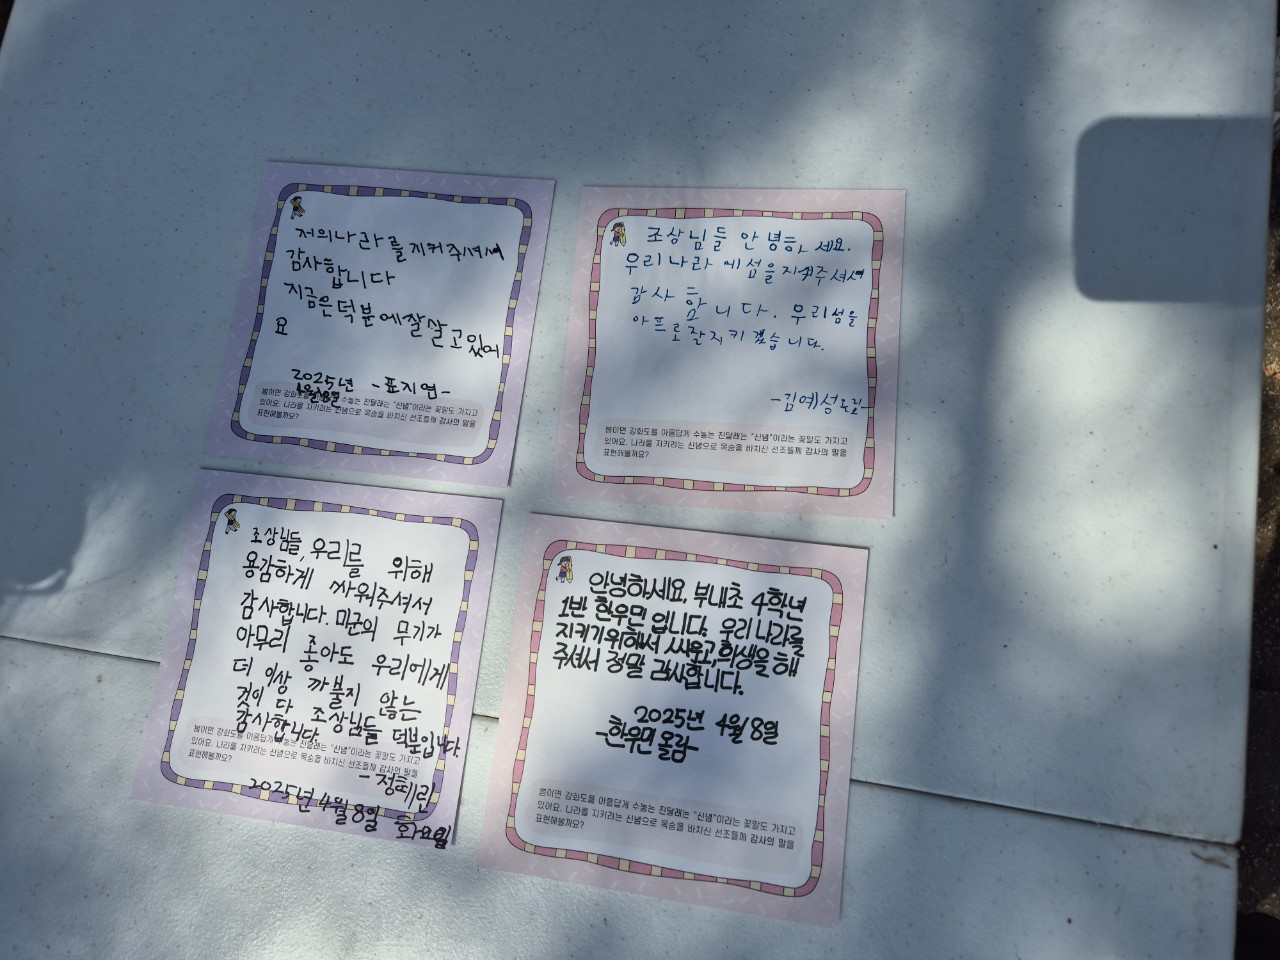 저의나라를지켜주셔서
감사합니다
지금은덕분에잘살고있어
요
2025년 -표지엽-
4월8일
봄이면 강화도를 수놓는 진달래는 "신념"이라는 꽃말도 가지고
있어요. 나라를 지키려는 신념으로 목숨을 바치신 선조들께 감사의 말을
표현해볼까요?
조상님들 안녕하세요.
우리나라에섬을지켜주셔서
감사합니다. 우리섬을
아프로잘지키겠습니다.
-김예성올림-
봄이면 강화도를 아름답게 수놓는 진달래는 "신념"이라는 꽃말도 가지고
있어요. 나라를 지키려는 신념으로 목숨을 바치신 선조들께 감사의 말을
표현해볼까요?
조상님들, 우리를 위해
용감하게 싸워주셔서
감사합니다. 미군의 무기가
아무리 좋아도 우리에게
더 이상 까불지 않는
것이 다 조상님들 덕분입니다.
감사합니다.
-정혜린
2025년 4월 8일 화요일
봄이면 강화도를 아름답게 수놓는 진달래는 "신념"이라는 꽃말도 가지고
있어요. 나라를 지키려는 신념으로 목숨을 바치신 선조들께 감사의 말을
표현해볼까요?
안녕하세요, 부내초 4학년
1반 한우민 입니다. 우리 나라를
지키기위해서 싸우고,희생을 해
주셔서 정말 감사합니다.
2025년 4월 8일
-한우민 올림-
봄이면 강화도를 아름답게 수놓는 진달래는 "신념"이라는 꽃말도 가지고
있어요. 나라를 지키려는 신념으로 목숨을 바치신 선조들께 감사의 말을
표현해볼까요?